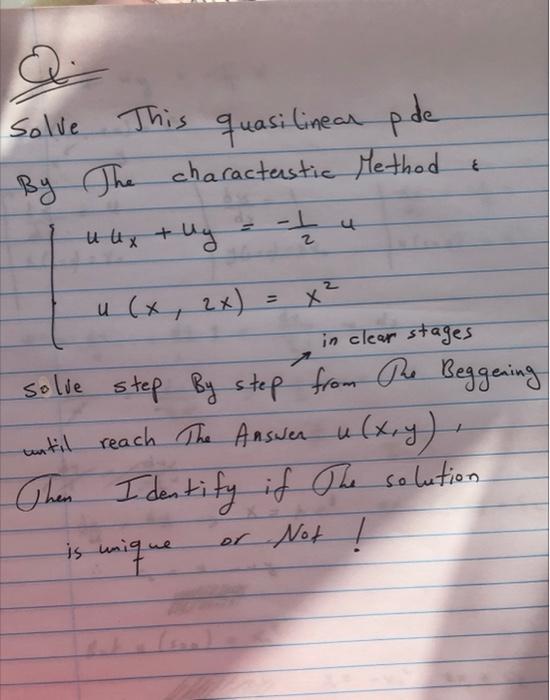 Q.
Solve This quasilinear pde
By The characterstic Method :
u ux + uy = -1/2 u
u (x, 2x) = x²
in clear stages
solve step By step from The Beggening
until reach The Answer u(x,y),
Then Identify if The solution
is unique or Not !